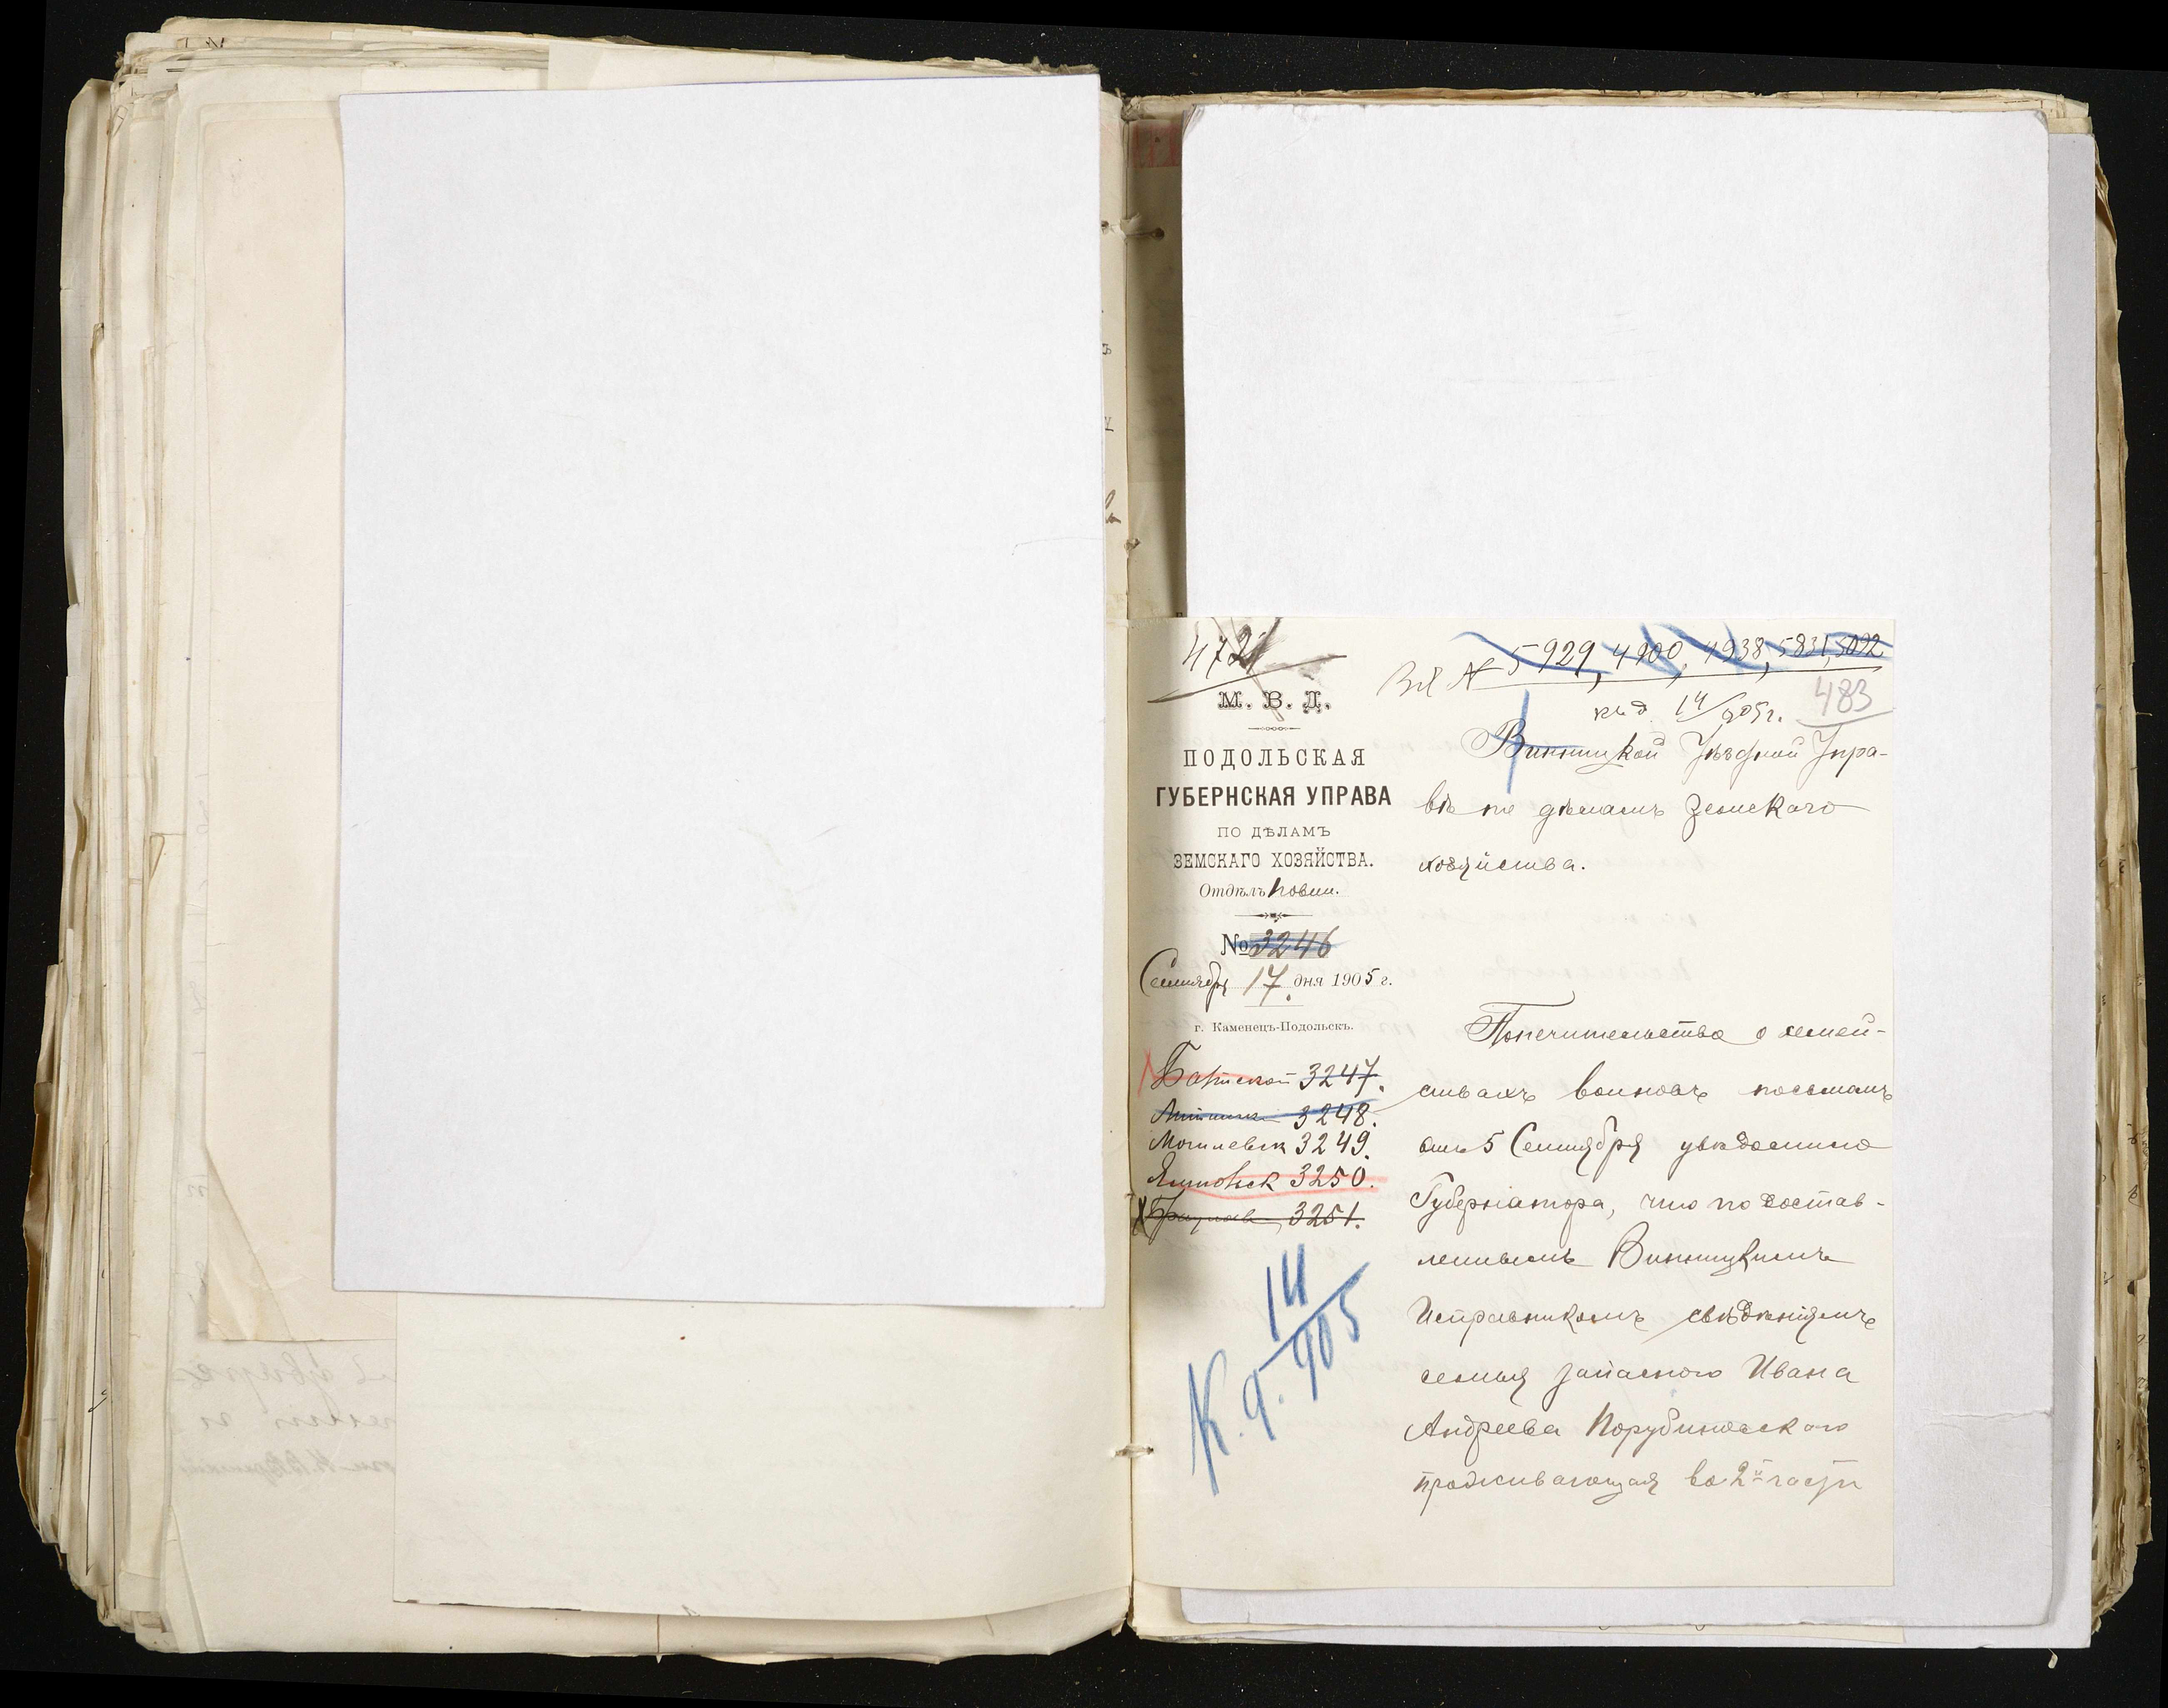 4721
М. В. Д.
ПОДОЛЬСКАЯ
ГУБЕРНСКАЯ УПРАВА
ПО ДѢЛАМЪ
ЗЕМСКАГО ХОЗЯЙСТВА.
Отдѣлъ повин.
№ 3246
Сентября 17 дня 1905 г.
г. Каменецъ-Подольскъ.
3247.
3248.
Могилевск 3249.
Ямпольск 3250.
3251.
К. д. 14/905
№ 5929, 4900, 4938, 5831, 5022
къ д. 14/905 г. 483
Винницкой Уѣздной Упра-
вѣ по дѣламъ Земскаго
хозяйства.
Попечительство о семей-
ствахъ воиновъ письмомъ
отъ 5 Сентября увѣдомило
Губернатора, что по состав-
леннымъ Винницкимъ
Исправникомъ свѣдѣніямъ
семья запасного Ивана
Андреева Порубиновскаго
проживающая во 2й части